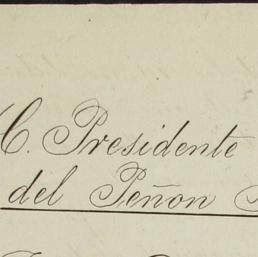 C. Presidente
del Peñon